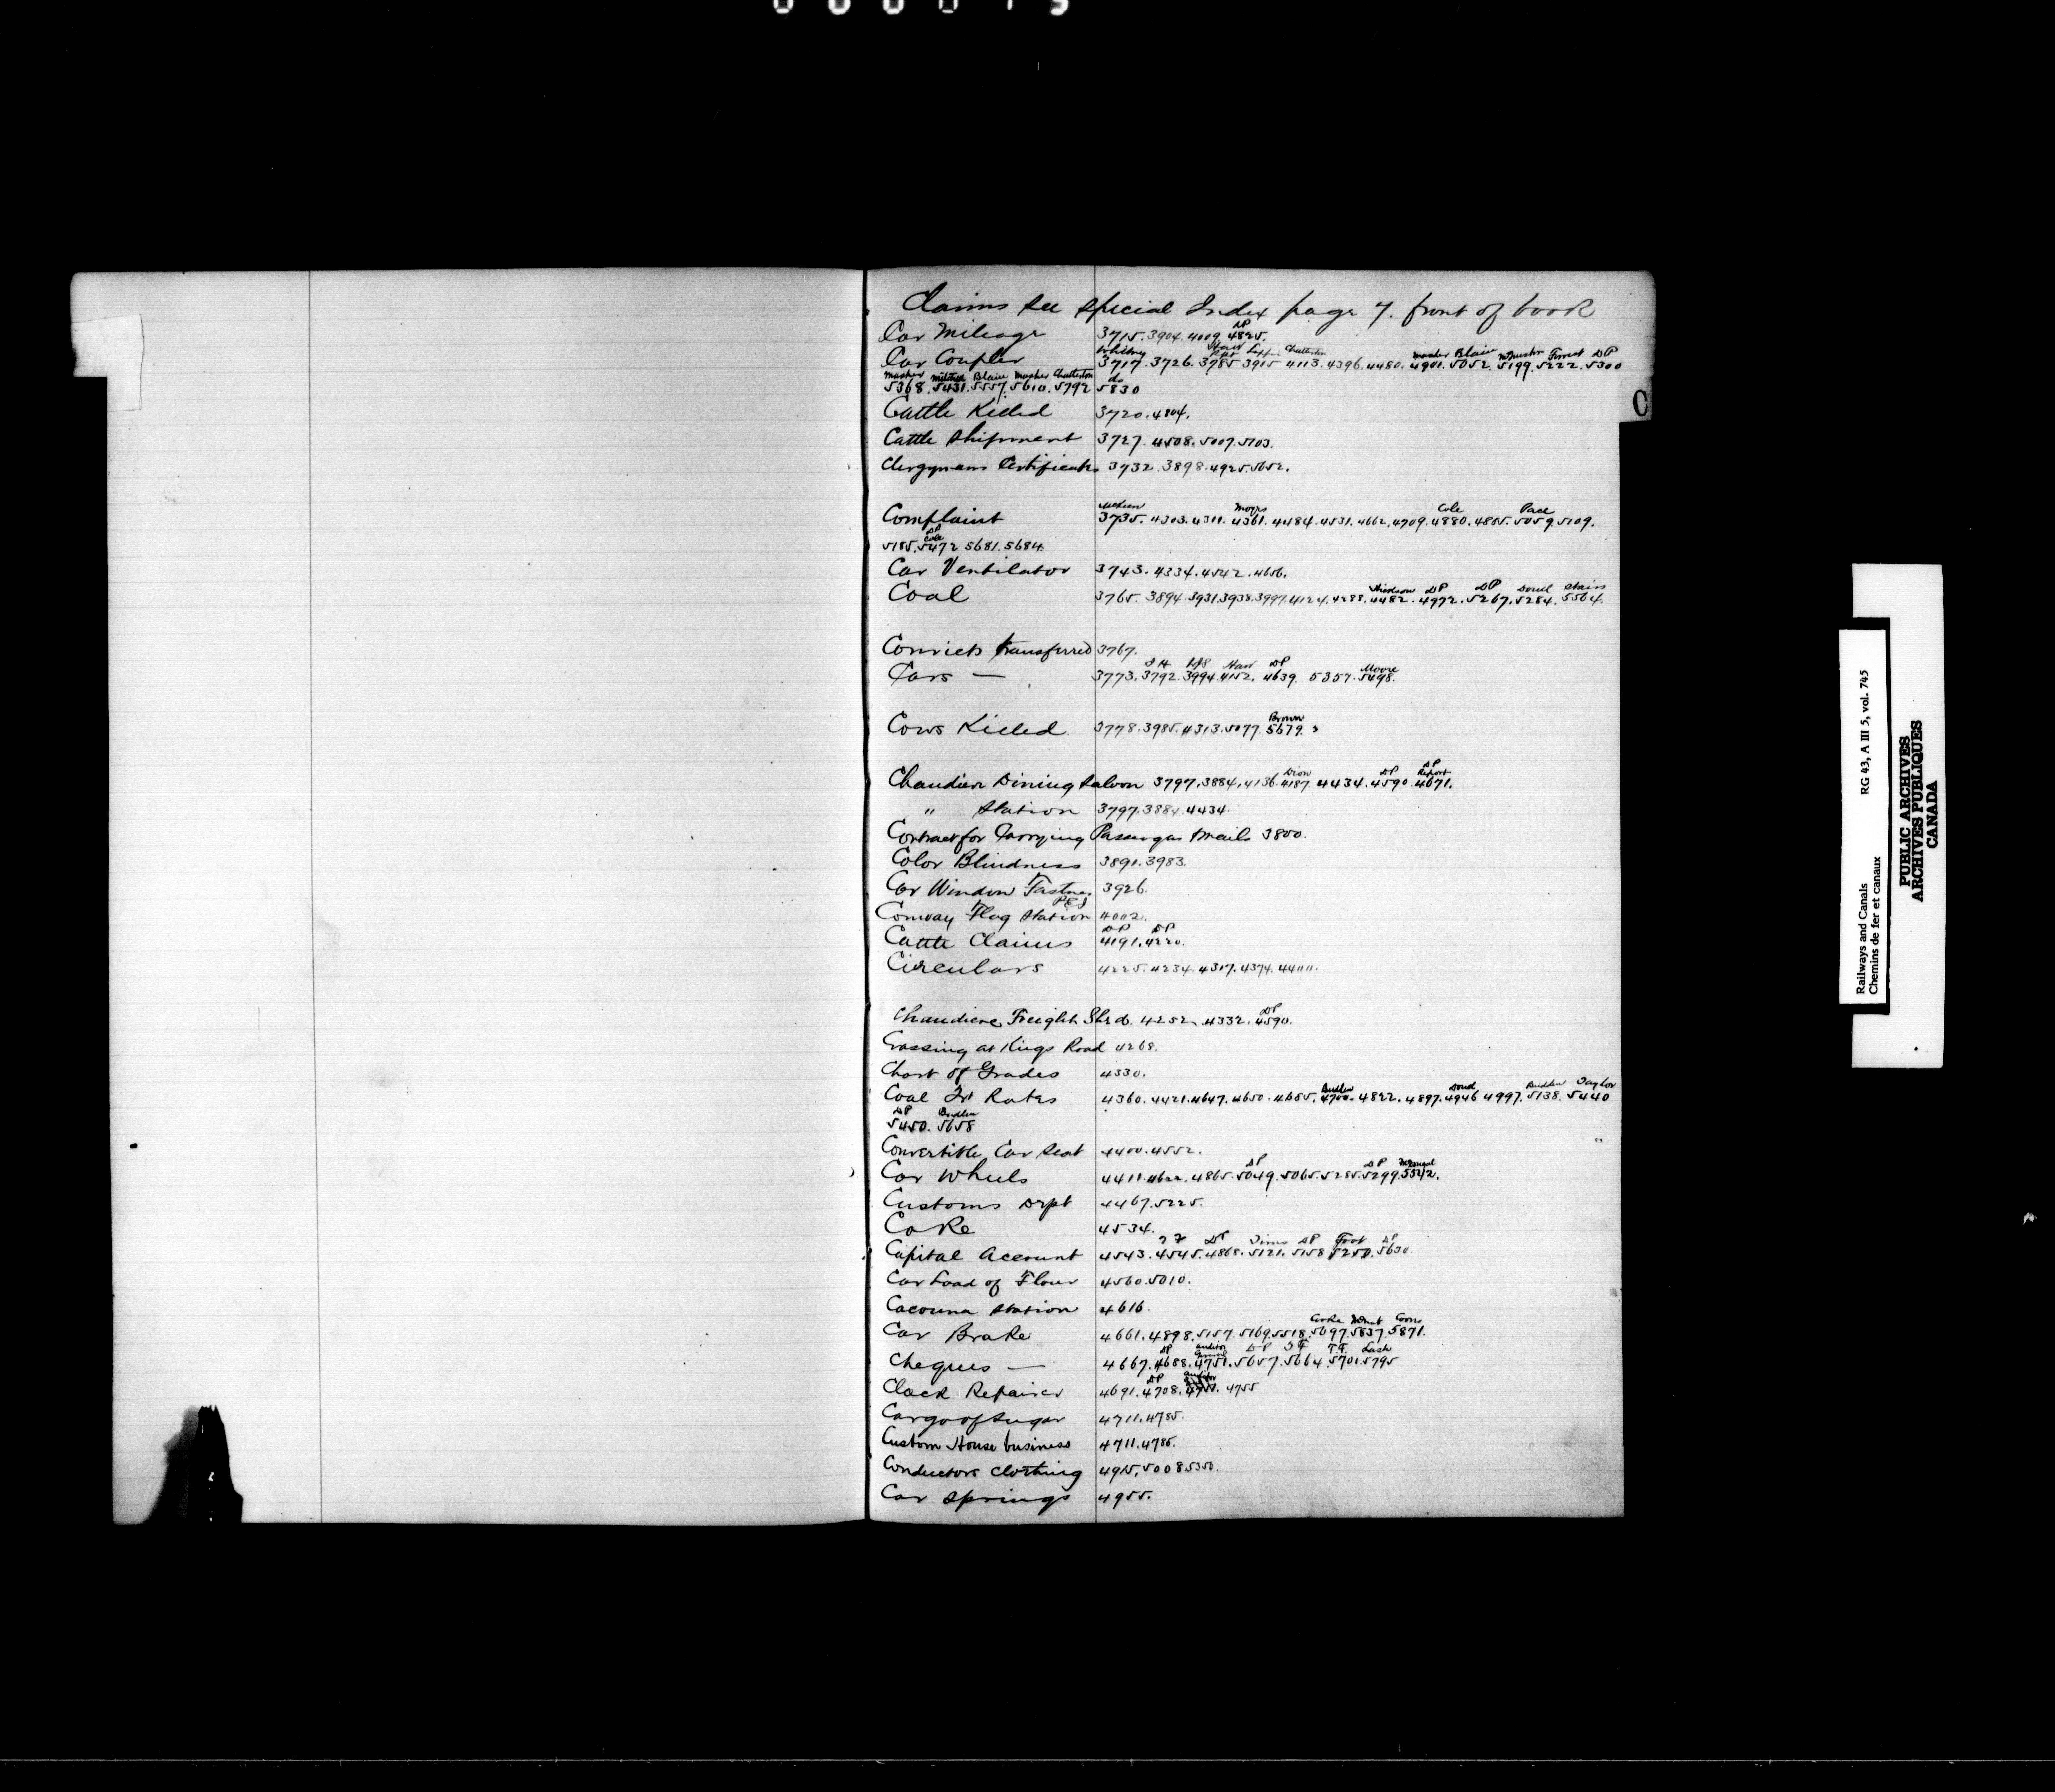 Claims see special Index page 7. front of book
DP
Car Mileage 3715. 3904. 4009. 4825.
Whitney Chatterton Mosher Blaine Forrest DP
Car Coupler 3717. 3726. 3785. 3915. 4113. 4396. 4480. 4901. 5052. 5199. 5222. 5300
Mosher Blaine Mosher Chatterton do
5368. 5431. 5557. 5610. 5792 5830
Cattle Killed 3720. 4804.
C
Cattle Shipment 3727. 4508. 5007. 5103.
Clergymans Certificates 3732. 3898. 4925. 5652.
Cole Pace
Complaint 3735. 4303. 4311. 4361. 4484. 4531. 4662. 4709. 4880. 4885. 5059. 5109.
DP
Cole
5185. 5472 5681. 5684.
Car Ventilator 3743. 4334. 4542. 4656.
DP DP Dowell Stairs
Coal 3765. 3894. 3931. 3938. 3997. 4124. 4288. 4482. 4972. 5267. 5284. 5564.
Convicts transferred 3767.
DP Moore
Cars — 3773. 3792. 3994. 4152. 4639. 5357. 5498.
Brown
Cows Killed 3778. 3985. 4313. 5077. 5679.
DP
Dion DP Report
Chaudiere Dining Saloon 3797. 3884. 4136. 4187. 4434. 4590. 4671.
" Station 3797. 3884. 4434.
Contract for Carrying Passengers Mails 3800.
Color Blindness 3891. 3983.
Car Window Fastner 3926.
PEI
Conway Flag Station 4002.
DP DP
Cattle Claims 4191. 4220.
Circulars 4225. 4234. 4317. 4374. 4400.
DP
Chaudiere Freight Shed. 4252. 4332. 4590.
Crossing at Kings Road 4268.
Chart of Grades 4330.
Budden Dowd Budden Taylor
Coal Frt Rates 4360. 4421. 4647. 4650. 4685. 4700. 4822. 4897. 4946 4997. 5138. 5440
DP Budden
5450. 5658
Convertible Car Seat 4400. 4552.
DP DP McDougal
Car Wheels 4411. 4622. 4865. 5049. 5065. 5285. 5299. 5542.
Customs Dept 4467. 5225.
Coke 4534.
DP DP Foot DP
Capital Account 4543. 4545. 4868. 5121. 5158 5250. 5630.
Car Load of Flour 4560. 5010.
Cacouna Station 4616.
Cooke Coon
Car Brake 4661. 4898. 5157. 5169. 5518. 5697. 5837. 5871.
DP Auditor General DP T.F. Lash
Cheques — 4667. 4688. 4751. 5657. 5664. 5701. 5795
DP Auditor
Clock Repairer 4691. 4708. 4755
Cargo of Sugar 4711. 4785.
Custom House business 4711. 4785.
Conductors Clothing 4915. 5008 5350.
Car Springs 4955.
RG 43, A III 5, vol. 745
Railways and Canals
Chemins de fer et canaux
PUBLIC ARCHIVES
ARCHIVES PUBLIQUES
CANADA